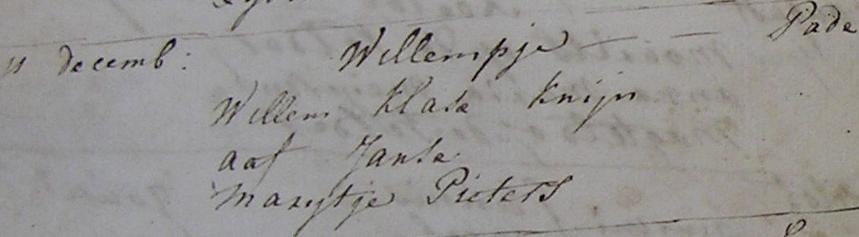 11 decemb: Willempje — — Pade
Willem Klase Knijn
aaf Janse
marytje Pieters